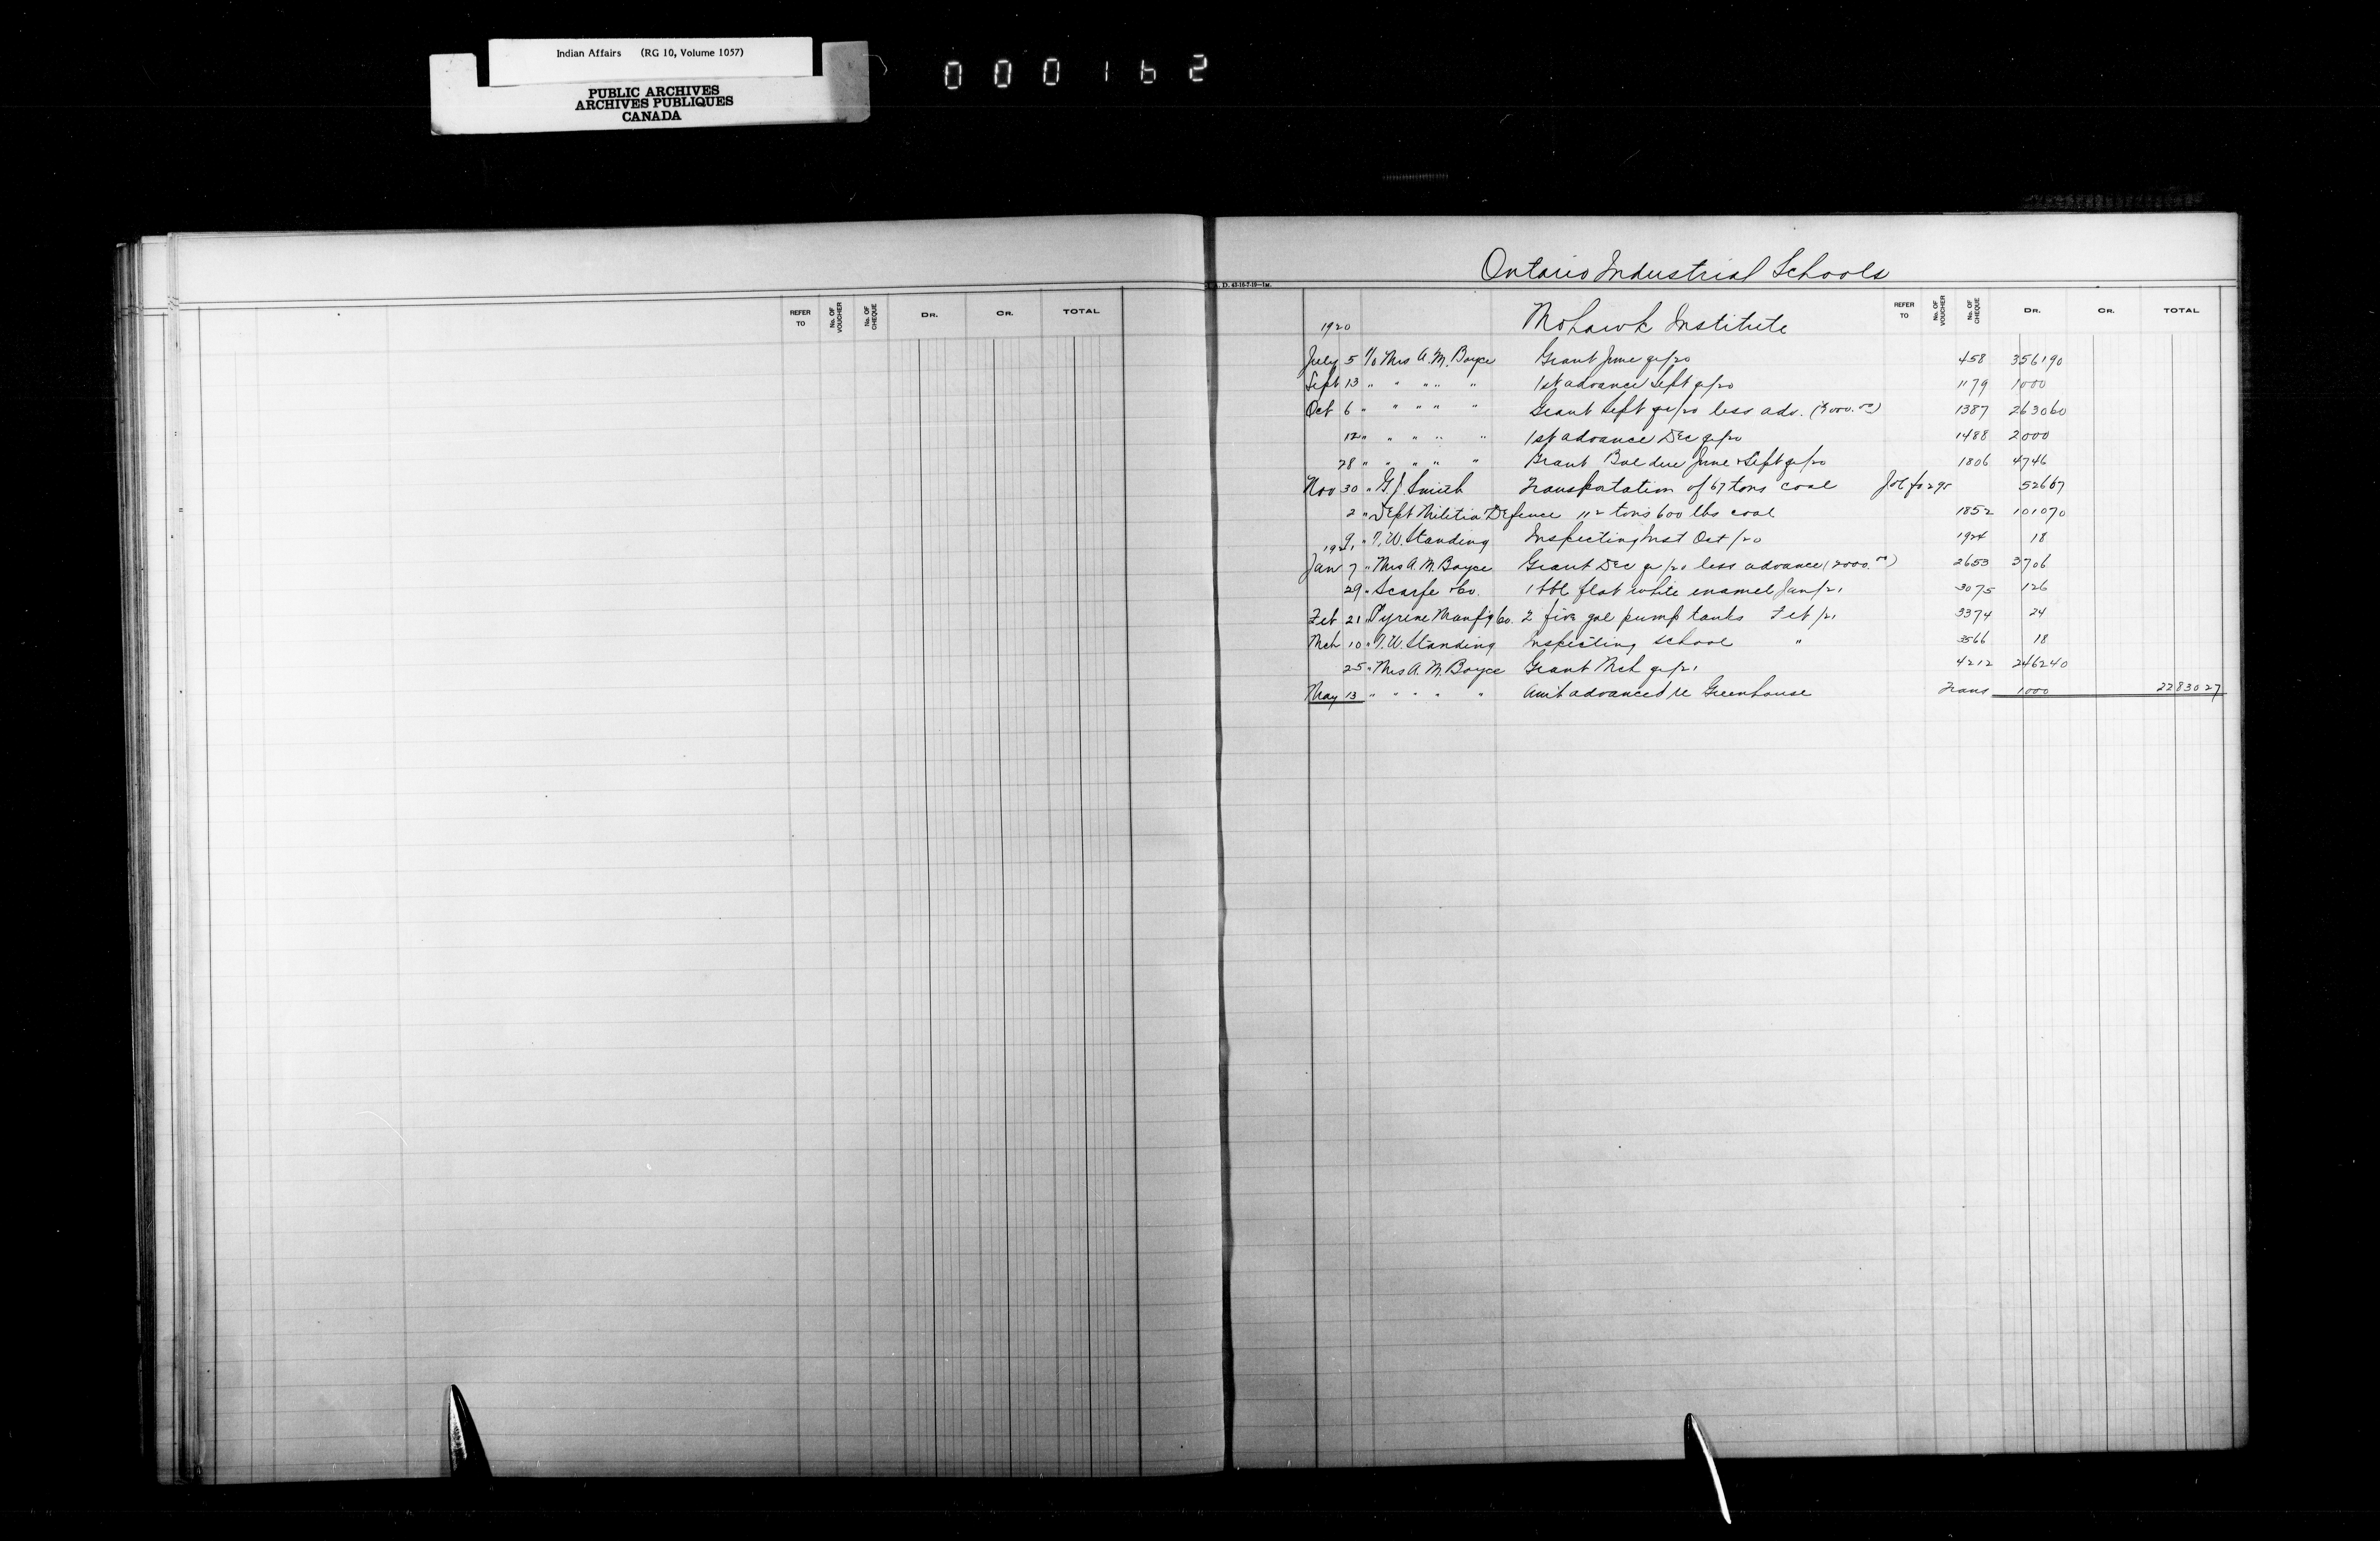 Indian Affairs (RG 10, Volume 1057)
PUBLIC ARCHIVES
ARCHIVES PUBLIQUES
CANADA
000162
REFER TO No. OF VOUCHER No. OF CHEQUE DR. CR. TOTAL
Ontario Industrial Schools
REFER TO No. OF VOUCHER No. OF CHEQUE DR. CR. TOTAL
1920 Mohawk Institute
July 5 To Mrs A. M. Boyce Grant June qr/20 458 3561 90
Sept 13 " " " " " 1st advance Sept qr/20 1179 1000
Oct 6 " " " " " Grant Sept qr/20 less adv. 1387 2630 60
12 " " " " " 1st advance Dec qr/20 1488 2000
28 " " " " " Grant Bal due June & Sept qr/20 1806 4746
Nov 30 " G. J. Smith Transportation of 67 tons coal 526 67
2 " Dept Militia Defence 112 tons 600 lbs coal 1852 1010 70
9 " T. W. Standing Inspecting Inst Oct/20 1924 18
1921
Jan 7 " Mrs A. M. Boyce Grant Dec qr/20 less advance (2000.00) 2653 3706
29 " Scarfe & Co. 1 bbl flat white enamel Jan/21 3075 126
Feb 21 " Pyrene Manf'g Co. 2 five gal pump tanks Feb/21 3374 24
Mch 10 " T. W. Standing Inspecting school " 3566 18
25 " Mrs A. M. Boyce Grant Mch qr/21 4212 2462 40
May 13 " " " " " Amt advanced re Greenhouse Trans 1000 22830 27